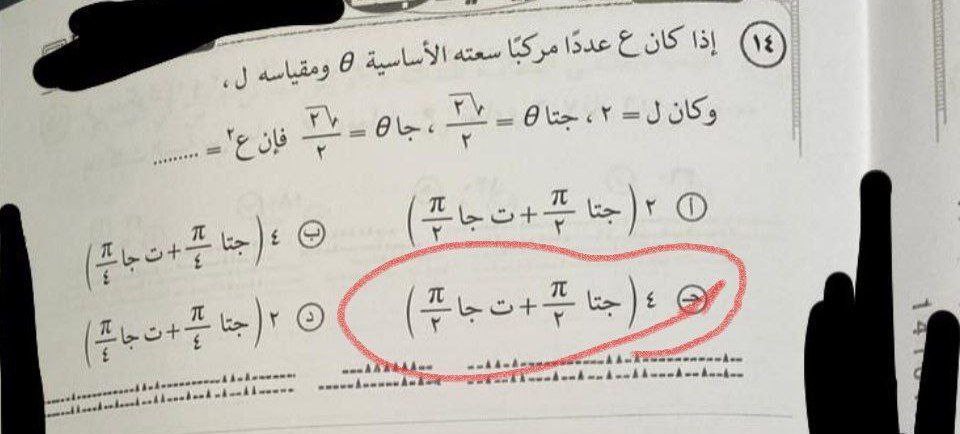 ١٤ إذا كان ع عددًا مركبًا سعته الأساسية θ ومقياسه ل ،
وكان ل = ٢ ، جتا θ = √٢/٢ ، جا θ = √٢/٢ فإن ع٢ = .........
أ ٢ (جتا π/٢ + ت جا π/٢)
ب ٤ (جتا π/٤ + ت جا π/٤)
جـ ٤ (جتا π/٢ + ت جا π/٢)
د ٢ (جتا π/٤ + ت جا π/٤)